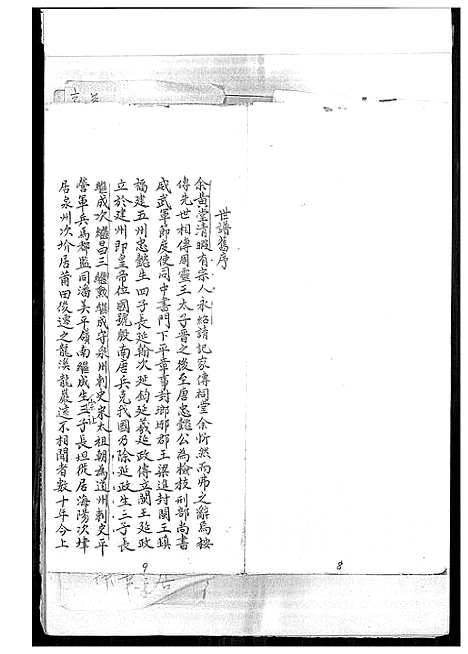 世譜舊序
余黃堂清暇有宗人永紹請記家傳祠堂余忻然而弗之辭為按
傳先世相傳周靈王太子晉之後至唐忠懿公為檢校刑部尚書
威武軍節度使同中書門下平章事封瑯琊郡王梁進封閩王鎮
福建五州忠懿生四子長延翰次延鈞延羲延政傳立閩王延政
立於建州即皇帝位國號殷南唐兵克我國乃除延政生三子長
繼成次繼昌三繼勲繼成守泉州刺史宋太祖朝為道州刺史平
營軍兵馬都監同潘美平嶺南繼成生三子長坦徙居海陽次埲
居泉州次玠居莆田俊遷之龍溪龍巖遠不相聞者數十年今上
9
8